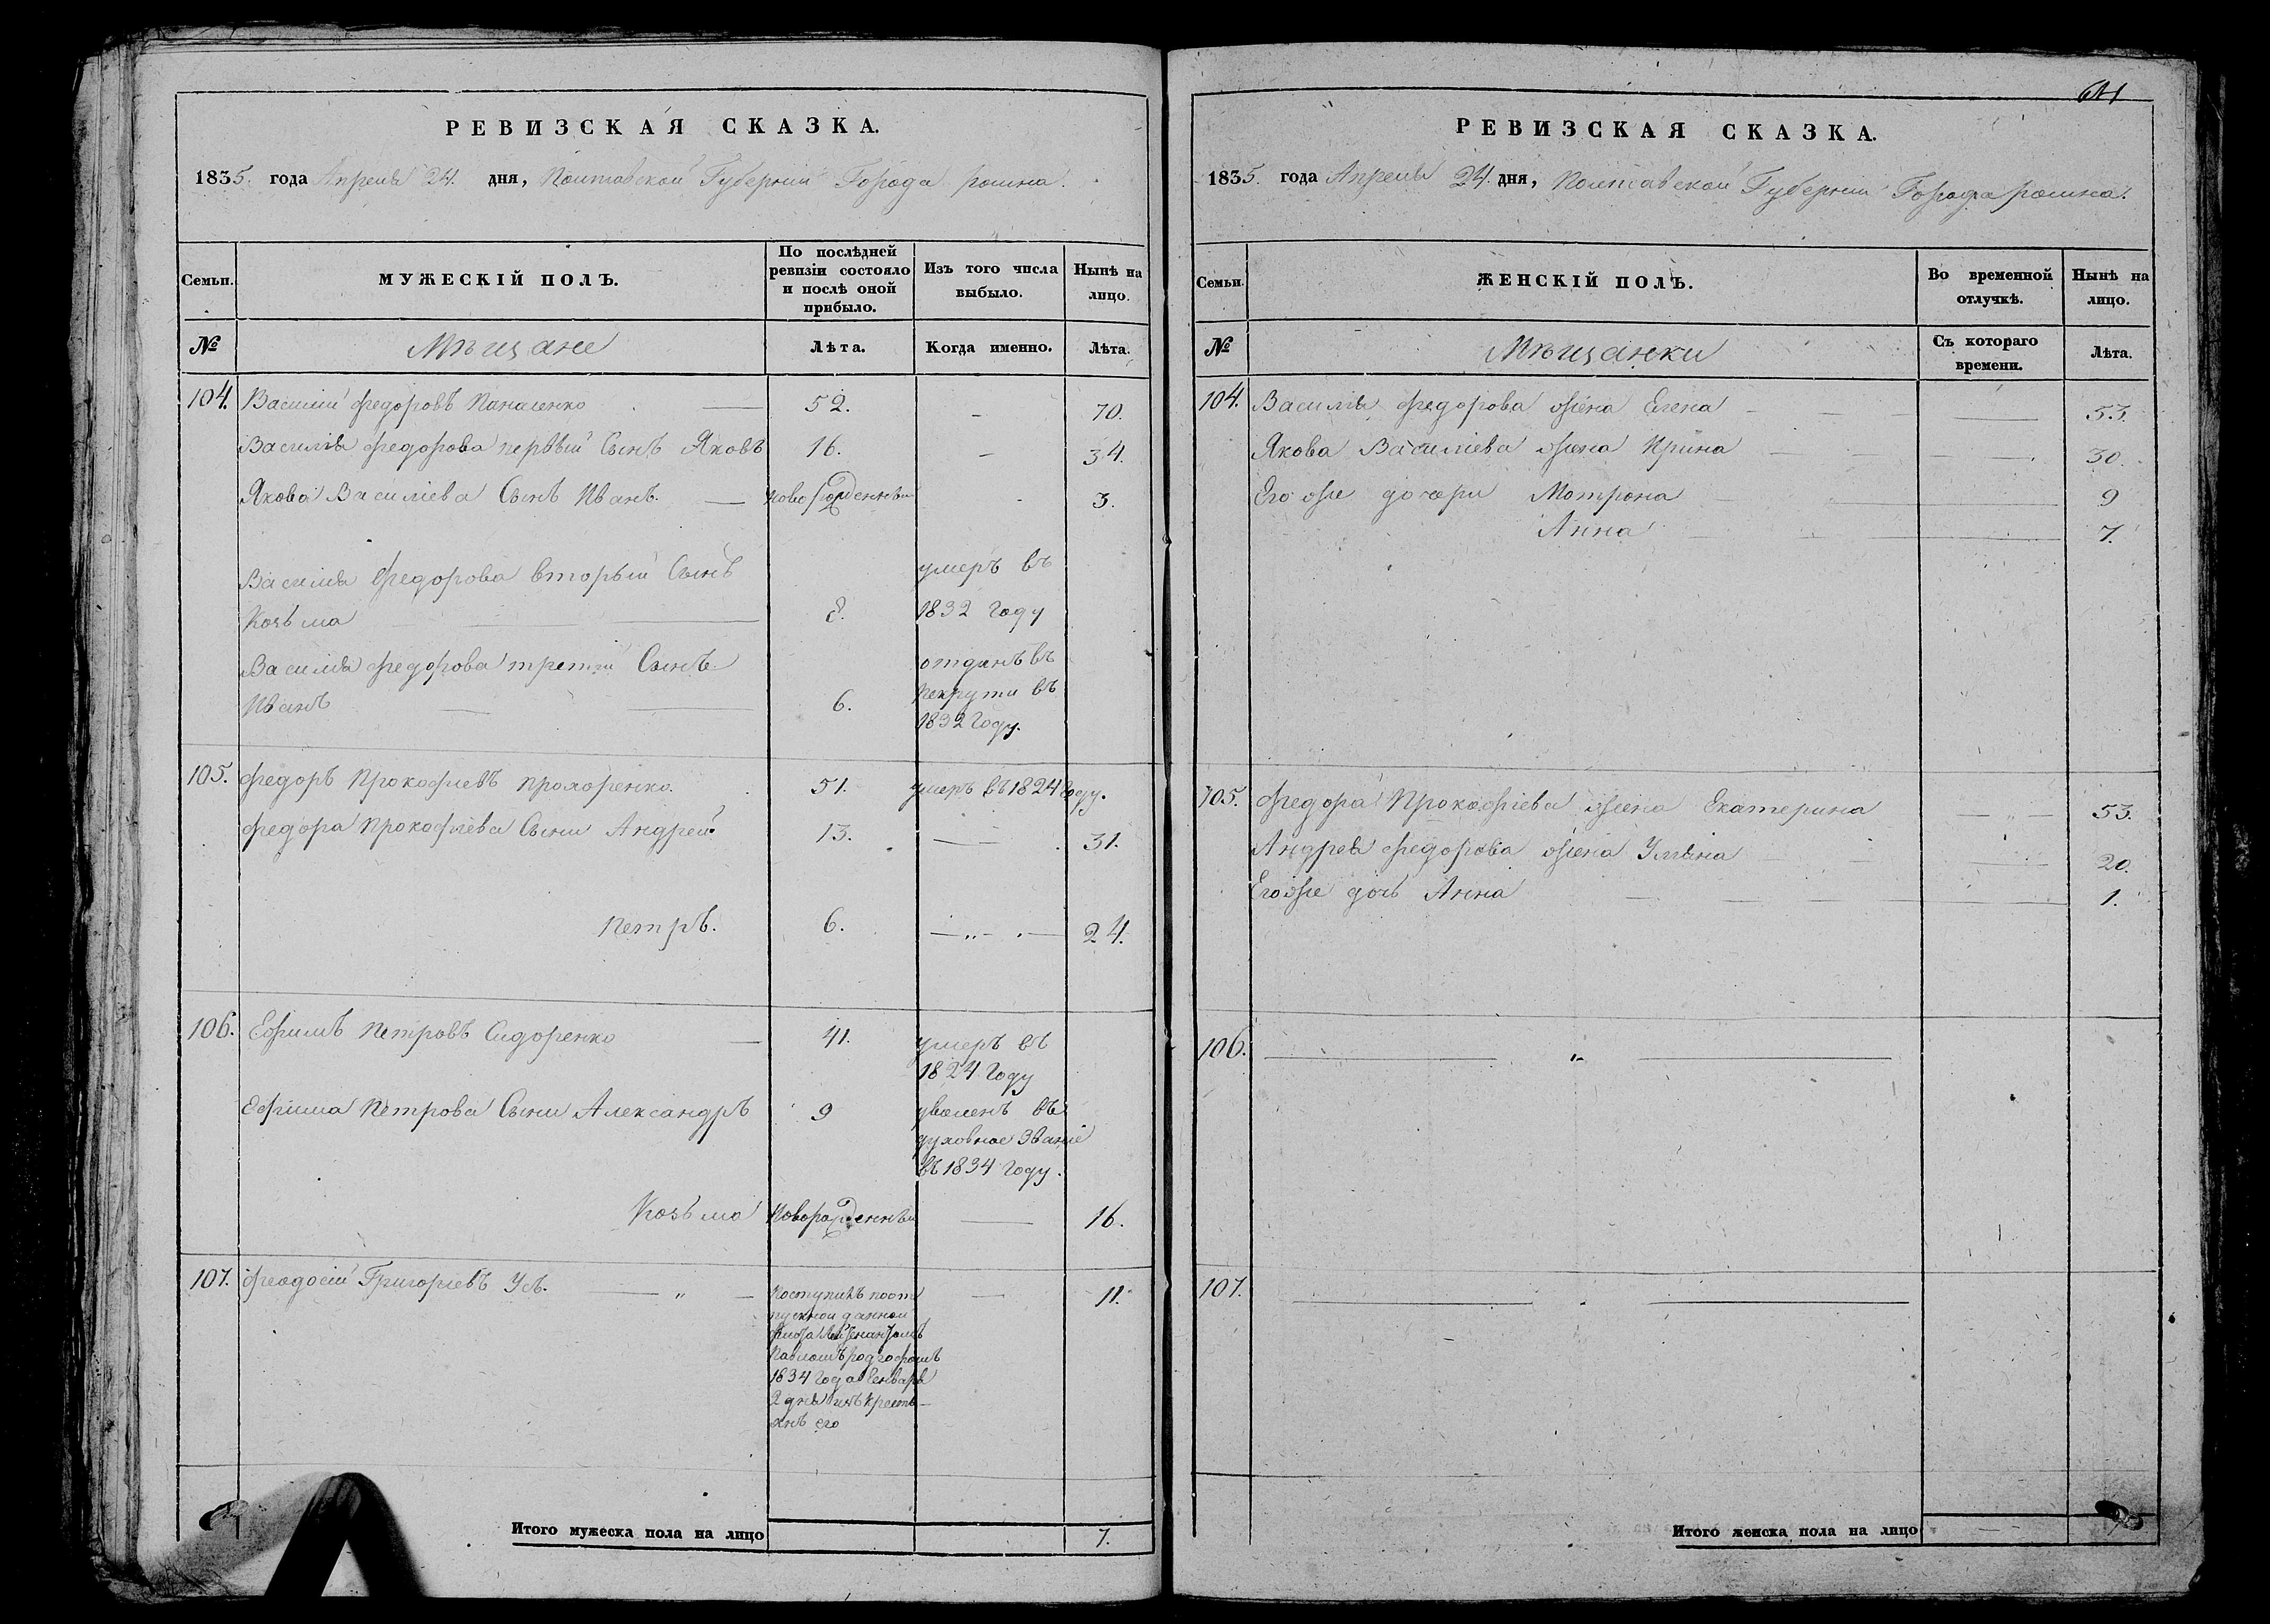 РЕВИЗСКАЯ СКАЗКА.
1835. года Апреля 24. дня, Полтавской Губернии Города ромна.
Семьи.
МУЖЕСКІЙ ПОЛЪ.
По послѣдней ревизіи состояло и послѣ оной прибыло.
Изъ того числа выбыло.
Нынѣ на лицо.
№
Мѣщане
Лѣта.
Когда именно.
Лѣта.
104. Василий федоровъ Панасенко 52. - 70.
Василія федорова первый Сынъ Яковъ 16. - 34.
Якова Василіева Сынъ Иванъ новорожденный - 3.
Василія федорова вторый Сынъ
Козьма 8. умеръ въ
1832 году
Василія федорова третій Сынъ
Иванъ 6. отданъ въ
рекруты въ
1832 году.
105. федоръ Прокофіевъ прохоренко. 51. умеръ въ 1824 году.
федора Прокофіева Сыни Андрей 13. 31.
петръ. 6. 24.
106. Ефимъ Петровъ Сидоренко 41. умеръ въ
1824 году
Ефима Петрова Сыни Александръ 9 уволенъ въ
духовное званіе
въ 1834 году.
Козьма Новорожденный 16.
107. феодосій Григоріевъ Усъ. 11.
поступилъ по от
пускной данной
Павломъ
1834 года Генваря
2 дня изъ кресть-
янъ его
Итого мужеска пола на лицо 7.
РЕВИЗСКАЯ СКАЗКА.
1835. года Апреля 24. дня, Полтавской Губернии Города ромна.
Семьи.
ЖЕНСКІЙ ПОЛЪ.
Во временной отлучкѣ.
Нынѣ на лицо.
№
Мѣщанки
Съ котораго времени.
Лѣта.
104. Василія федорова жена Елена 53.
Якова Василіева жена Ирина 30.
Его же дочери Мотрона 9
Анна 7.
105. федора Прокофіева жена Екатерина 53.
Андрея федорова жена Уліяна 20.
Его же дочь Анна 1.
106.
107.
Итого женска пола на лицо